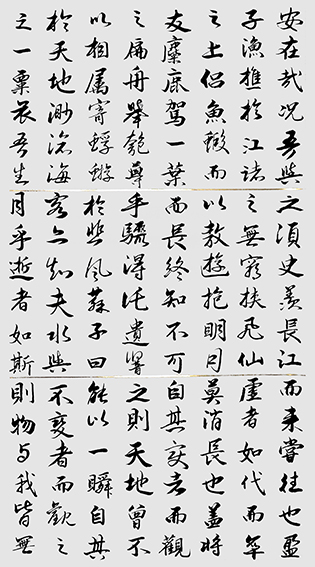 安在哉況吾與
子漁樵於江渚
之上侶魚蝦而
友麋鹿駕一葉
之扁舟舉匏尊
以相屬寄蜉蝣
於天地渺滄海
之一粟哀吾生
之須臾羨長江
之無窮挾飛仙
以遨遊抱明月
而長終知不可
乎驟得託遺響
於悲風蘇子曰
客亦知夫水與
月乎逝者如斯
而未嘗往也盈
虛者如代而卒
莫消長也蓋將
自其變者而觀
之則天地曾不
能以一瞬自其
不變者而觀之
則物与我皆無